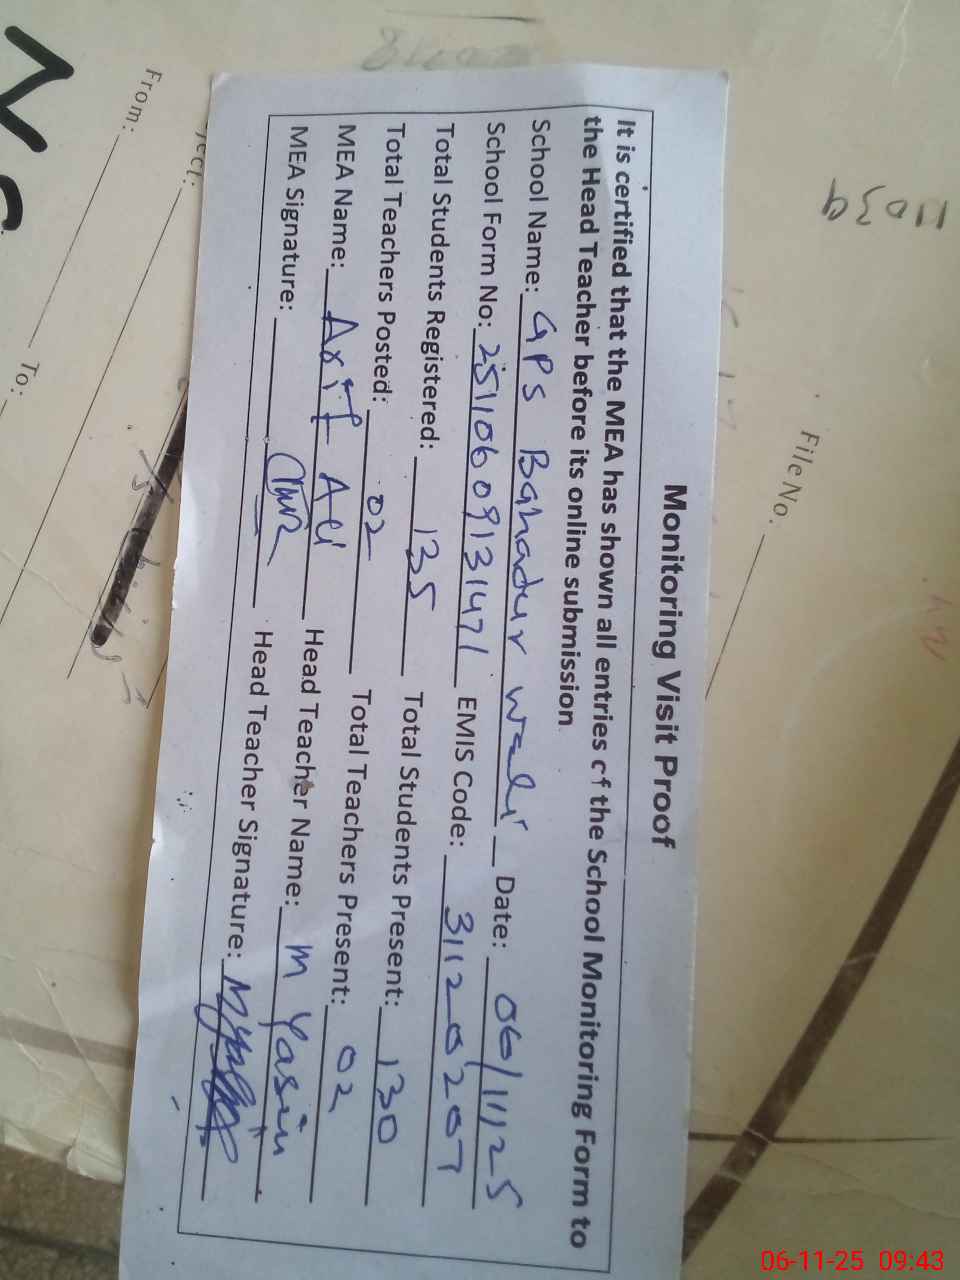 Monitoring Visit Proof
It is certified that the MEA has shown all entries of the School Monitoring Form to
the Head Teacher before its online submission
School Name: GPS Bahadur Wali Date: 06/11/25
School Form No: 25110609131471 EMIS Code: 31120207
Total Students Registered: 135 Total Students Present: 130
Total Teachers Posted: 02 Total Teachers Present: 02
MEA Name: Arif Ali Head Teacher Name: M Yasin
MEA Signature: Head Teacher Signature:
File No.
From:
To:
06-11-25 09:43